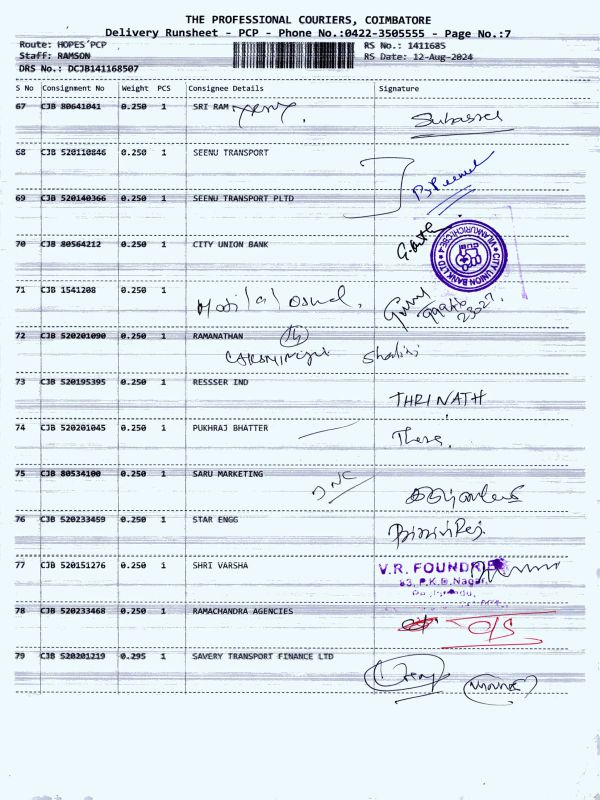 THE PROFESSIONAL COURIERS, COIMBATORE
Delivery Runsheet - PCP - Phone No.:0422-3505555 - Page No.:7
Route: HOPES PCP RS No.: 1411685
Staff: RAMSON RS Date: 12-Aug-2024
DRS No.: DCJB141168507
S No Consignment No Weight PCS Consignee Details Signature
67 CJB 80641041 0.250 1 SRI RAM
68 CJB 520110846 0.250 1 SEENU TRANSPORT
69 CJB 520140366 0.250 1 SEENU TRANSPORT PLTD
70 CJB 80564212 0.250 1 CITY UNION BANK
CITY UNION BANK LTD
71 CJB 1541208 0.250 1
72 CJB 520201090 0.250 1 RAMANATHAN
Shalini
73 CJB 520195395 0.250 1 RESSSER IND
THRINATH
74 CJB 520201045 0.250 1 PUKHRAJ BHATTER
75 CJB 80534100 0.250 1 SARU MARKETING
DNC
76 CJB 520233459 0.250 1 STAR ENGG
77 CJB 520151276 0.250 1 SHRI VARSHA
V.R. FOUNDRIES
63, P.K.D. Nagar,
78 CJB 520233468 0.250 1 RAMACHANDRA AGENCIES
O/S
79 CJB 520201219 0.295 1 SAVERY TRANSPORT FINANCE LTD